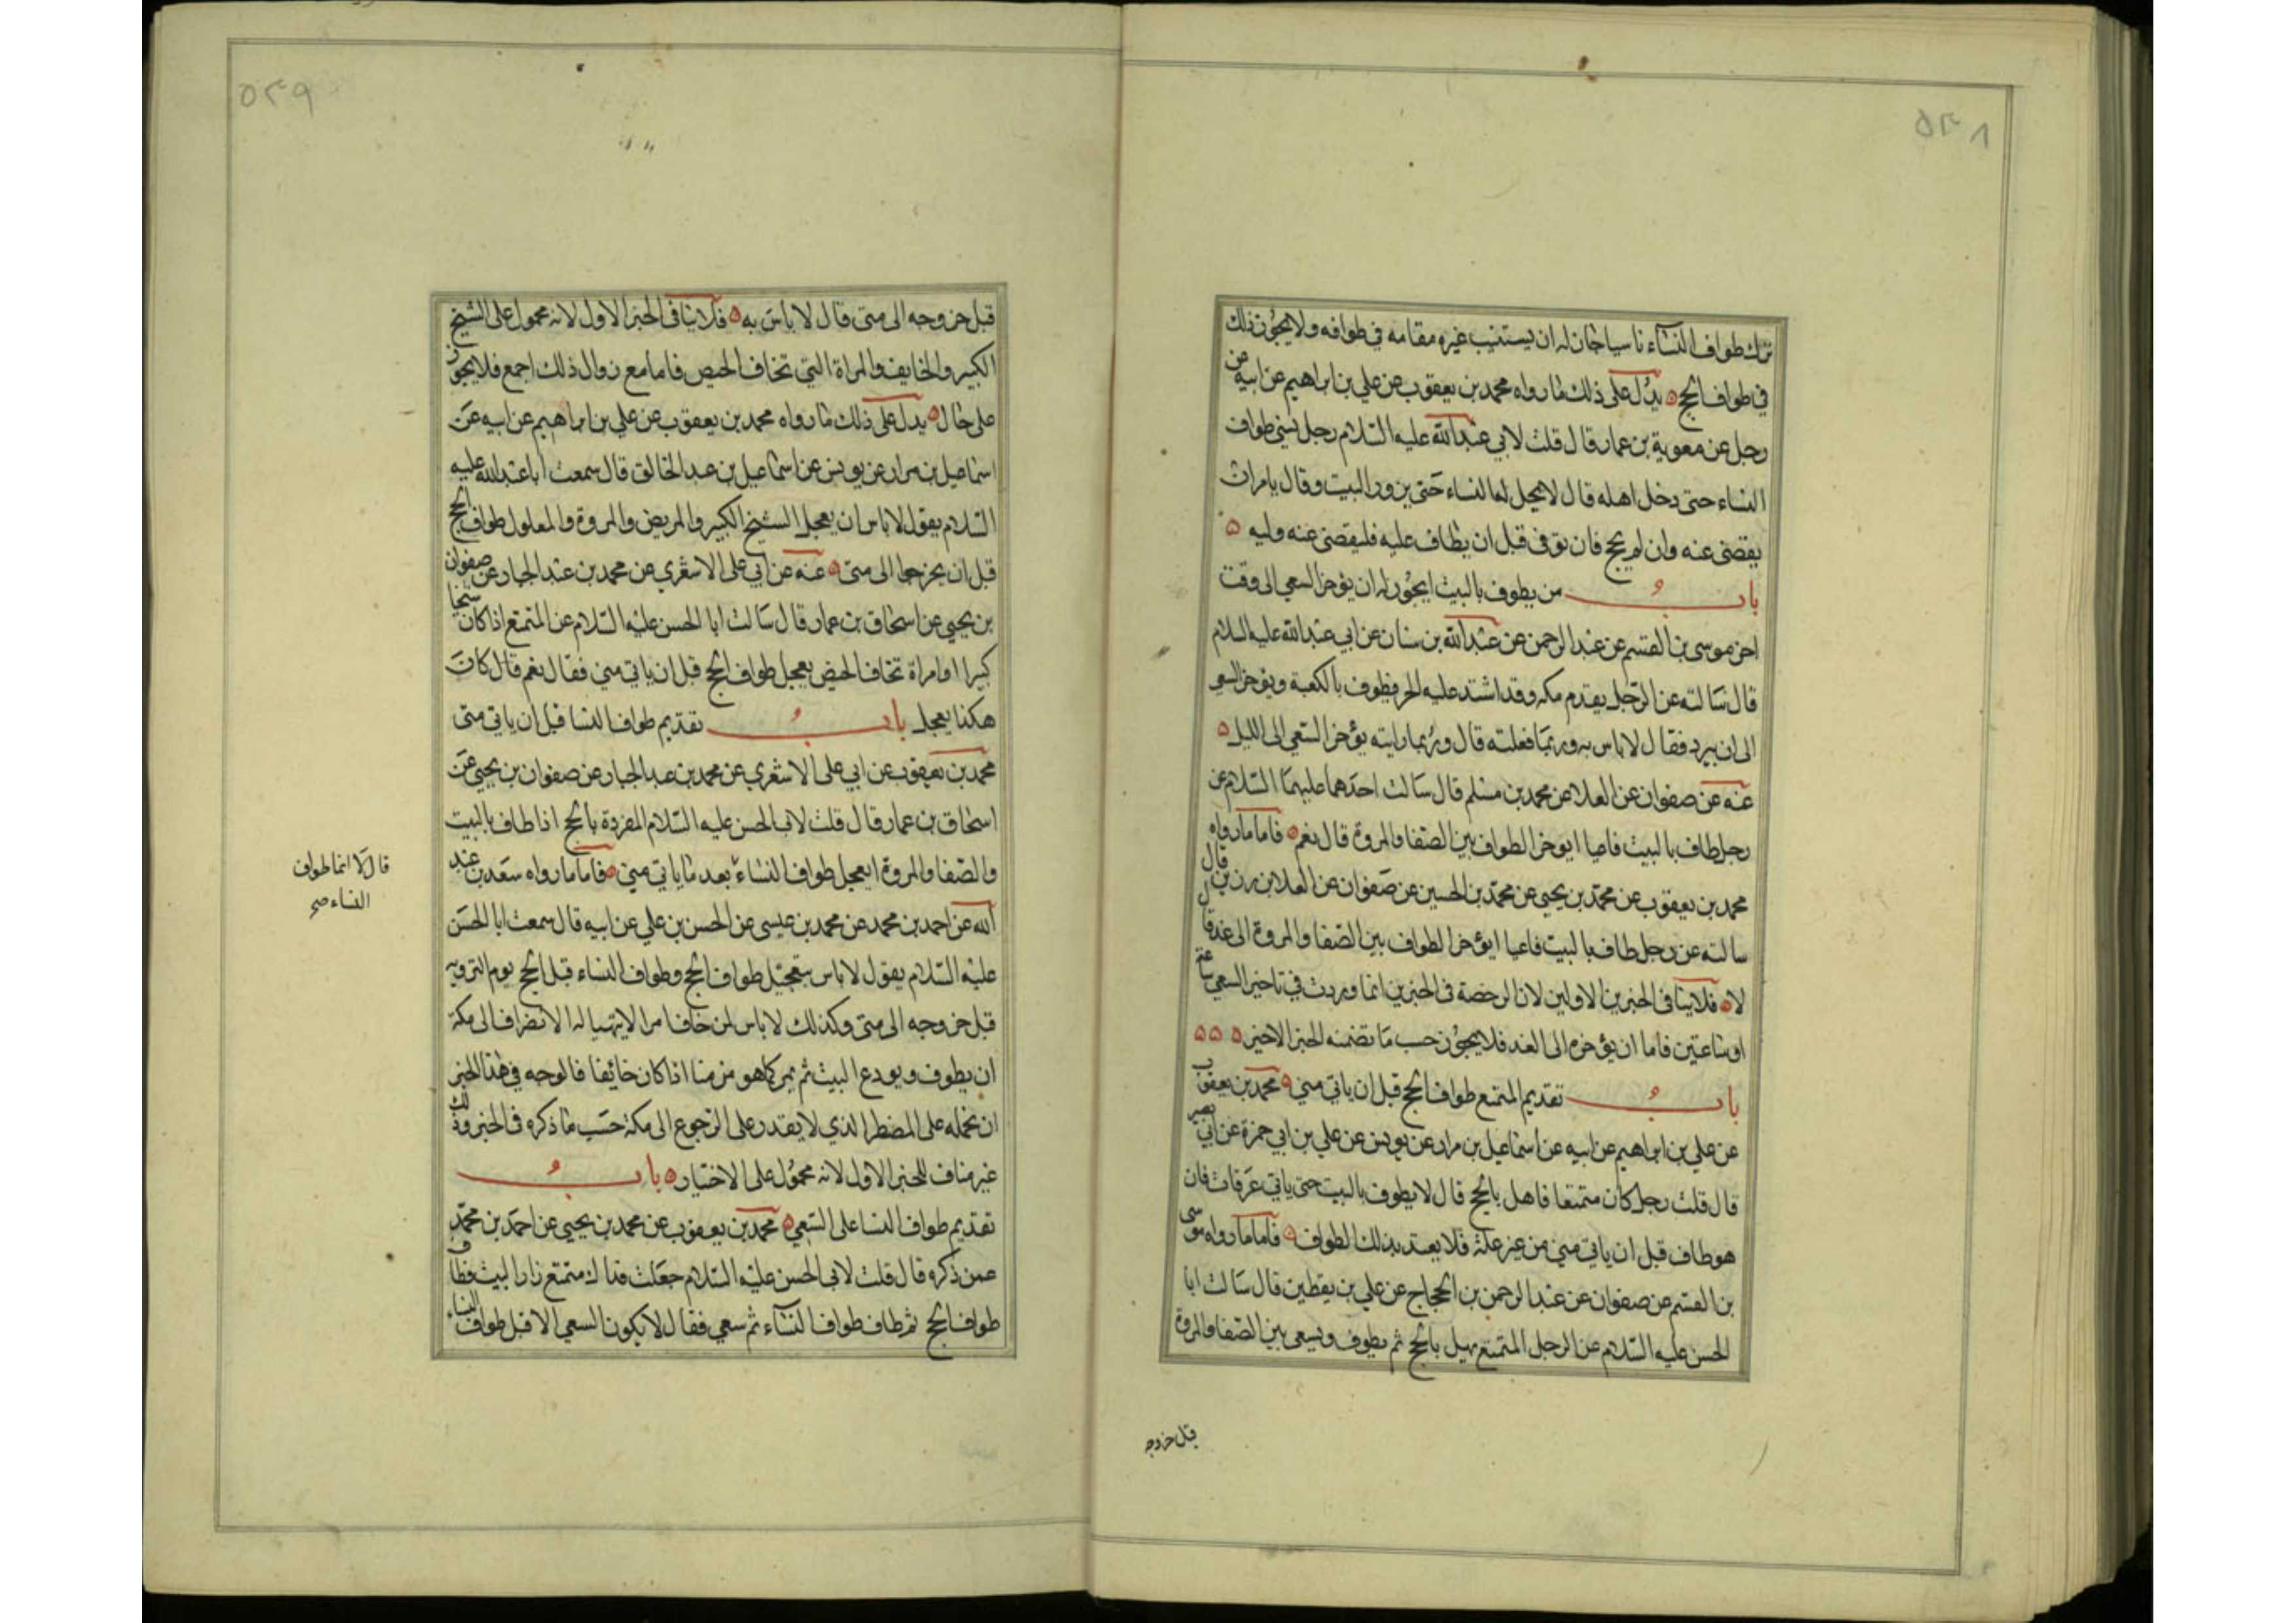 ٥٣٨
ترك طواف النساء ناسيا جاز له ان يستنيب غيره مقامه في طوافه ولا يجوز ذلك
في طواف الحج ه يدل على ذلك ما رواه محمد بن يعقوب عن علي بن ابراهيم عن ابيه عن
رجل عن معوية بن عمار قال قلت لابي عبدالله عليه السلام رجل نسي طواف
النساء حتى دخل اهله قال لا يحل له النساء حتى يزور البيت وقال يامر ان
يقضى عنه وان لم يحج فان توفى قبل ان يطاف عليه فليقضى عنه وليه ه
باب من يطوف بالبيت ايجوز له ان يؤخر السعي الى وقت
اخر موسى بن القسم عن عبد الرحمن عن عبدالله بن سنان عن ابي عبدالله عليه السلام
قال سالته عن الرجل يقدم مكه وقد اشتد عليه الحر فيطوف بالكعبة ويؤخر السعي
الى ان يبرد فقال لا باس به وربما فعلته قال وربما رايته يؤخر السعي الى الليل ه
عنه عن صفوان عن العلا عن محمد بن مسلم قال سالت احدهما عليهما السلام عن
رجل طاف بالبيت فاعيا ايؤخر الطواف بين الصفا والمروة قال نعم ه فاما ما رواه
محمد بن يعقوب عن محمد بن يحيى عن محمد بن الحسين عن صفوان عن العلا بن رزين قال
سالته عن رجل طاف بالبيت فاعيا ايؤخر الطواف بين الصفا والمروة الى غد قال
لا ه فلا ينافى الخبرين الاولين لان الرخصة فى الخبرين انما وردت في تاخير السعي ساعة
او ساعتين فاما ان يؤخره الى الغد فلا يجوز حسب ما تضمنه الخبر الاخير ه ه ه
باب تقديم المتمتع طواف الحج قبل ان ياتي منى ه محمد بن يعقوب
عن علي بن ابراهيم عن ابيه عن اسماعيل بن مرار عن يونس عن علي بن ابي حمزة عن ابي بصير
قال قلت رجل كان متمتعا فاهل بالحج قال لا يطوف بالبيت حتى ياتي عرفات فان
هو طاف قبل ان ياتي منى من غير علة فلا يعتد بذلك الطواف ه فاما ما رواه موسى
بن القسم عن صفوان عن عبد الرحمن بن الحجاج عن علي بن يقطين قال سالت ابا
الحسن عليه السلام عن الرجل المتمتع يهل بالحج ثم يطوف ويسعى بين الصفا والمروة
قبل خروجه
٥٣٩
قبل خروجه الى منى قال لا باس به ه فلا ينافى الخبر الاول لانه محمول على الشيخ
الكبير والخايف والمراة التي تخاف الحيض فاما مع زوال ذلك اجمع فلا يجوز
على حال ه يدل على ذلك ما رواه محمد بن يعقوب عن علي بن ابراهيم عن ابيه عن
اسماعيل بن مرار عن يونس عن اسماعيل بن عبد الخالق قال سمعت ابا عبدالله عليه
السلام يقول لا باس ان يعجل الشيخ الكبير والمريض والمروة والمعلول طواف الحج
قبل ان يخرج الى منى ه عنه عن ابي على الاشعري عن محمد بن عبد الجبار عن صفوان
بن يحيى عن اسحاق بن عمار قال سالت ابا الحسن عليه السلام عن المتمتع اذا كان شيخا
كبيرا او امراة تخاف الحيض يعجل طواف الحج قبل ان ياتي منى فقال نعم قال كان
هكذا يعجل باب تقديم طواف النسا قبل ان ياتي منى
محمد بن يعقوب عن ابي على الاشعري عن محمد بن عبد الجبار عن صفوان بن يحيى عن
اسحاق بن عمار قال قلت لابى الحسن عليه السلام المفردة بالحج اذا طاف بالبيت
والصفا والمروة ايعجل طواف النساء بعد ما ياتي منى ه فاما ما رواه سعد بن عبد
قال لا انما طواف
النساء صح
الله عن احمد بن محمد عن محمد بن عيسى عن الحسن بن علي عن ابيه قال سمعت ابا الحسن
عليه السلام يقول لا باس بتعجيل طواف الحج وطواف النساء قبل الحج يوم الترويه
قبل خروجه الى منى وكذلك لا باس لمن خاف امرا لا يتهيا له الانصراف الى مكة
ان يطوف ويودع البيت ثم يمر كما هو من منا اذا كان خائفا فالوجه في هذا الخبر
ان نحمله على المضطر الذي لا يقدر على الرجوع الى مكة حسب ما ذكره فى الخبر وذلك
غير مناف للخبر الاول لانه محمول على الاختيار ه باب
تقديم طواف النسا على السعي ه محمد بن يعقوب عن محمد بن يحيى عن احمد بن محمد
عمن ذكره قال قلت لابى الحسن عليه السلام جعلت فداك متمتع زار البيت فطاف
طواف الحج ثم طاف طواف النساء ثم سعي فقال لا يكون السعي الا قبل طواف النساء